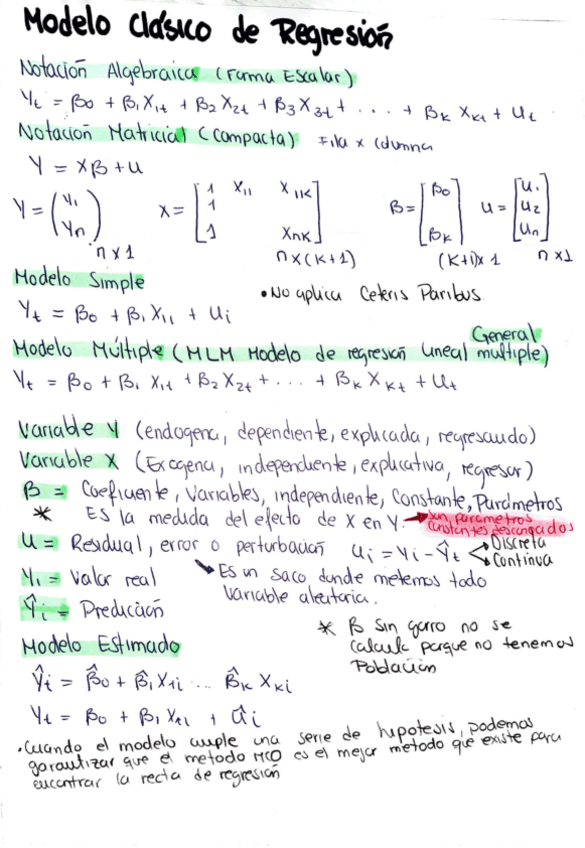 Modelo Clásico de Regresión
Notación Algebraica (Forma Escalar)
Yt = β0 + β1 X1t + β2 X2t + β3 X3t + . . . + βk Xkt + Ut
Notación Matricial (Compacta) Fila x Columna
Y = Xβ + U
Y = (Y1 Yn) n x 1 X = [1 X11 X1K 1 1 XnK] n x (K+1) β = [β0 βK] (K+1) x 1 U = [U1 U2 Un] n x 1
Modelo Simple
• No aplica Ceteris Paribus
Yt = β0 + β1 X11 + Ui
General
Modelo Múltiple (MLM Modelo de regresión lineal multiple)
Yt = β0 + β1 X1t + β2 X2t + . . . + βK XKt + Ut
Variable Y (endogena, dependiente, explicada, regresando)
Variable X (Exogena, independiente, explicativa, regresor)
β = Coeficiente, Variables, independiente, Constante, Parámetros
* ES la medida del efecto de X en Y. → son parametros
constantes desconocidos
U = Residual, error o perturbación Ui = Yi - Ŷt Discreta
Continua
Y1 = Valor real
Es un saco donde metemos todo
variable aleatoria.
Ŷi = Predicción
* β Sin gorro no se
calcula porque no tenemos
Población
Modelo Estimado
Ŷi = β̂0 + β̂1 X1i ... β̂K XKi
Yt = β0 + β1 Xt1 + ûi
• Cuando el modelo cumple una serie de hipotesis, podemos
garautizar que el metodo MCO es el mejor metodo que existe para
encontrar la recta de regresión